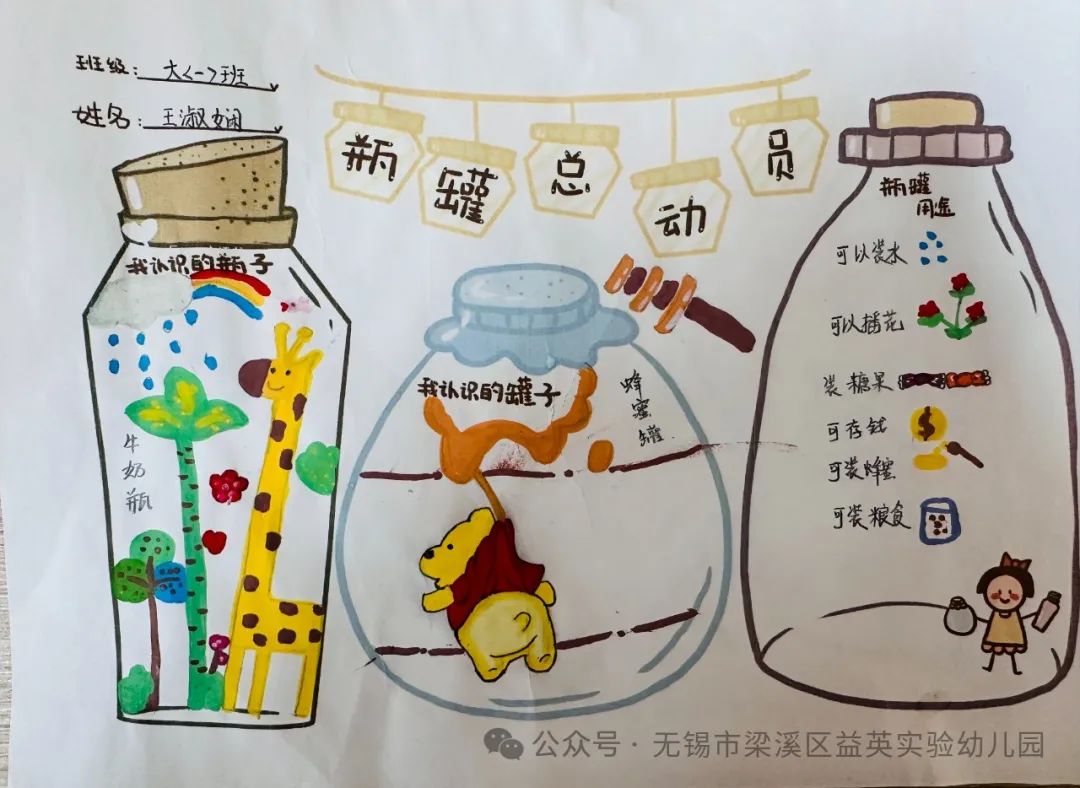 班级：大<一>班
姓名：王淑娴
瓶罐总动员
我认识的瓶子
牛奶瓶
我认识的罐子
蜂蜜罐
瓶罐
用途
可以装水
可以插花
装糖果
可存钱
$
可装蜂蜜
可装粮食
公众号 · 无锡市梁溪区益英实验幼儿园